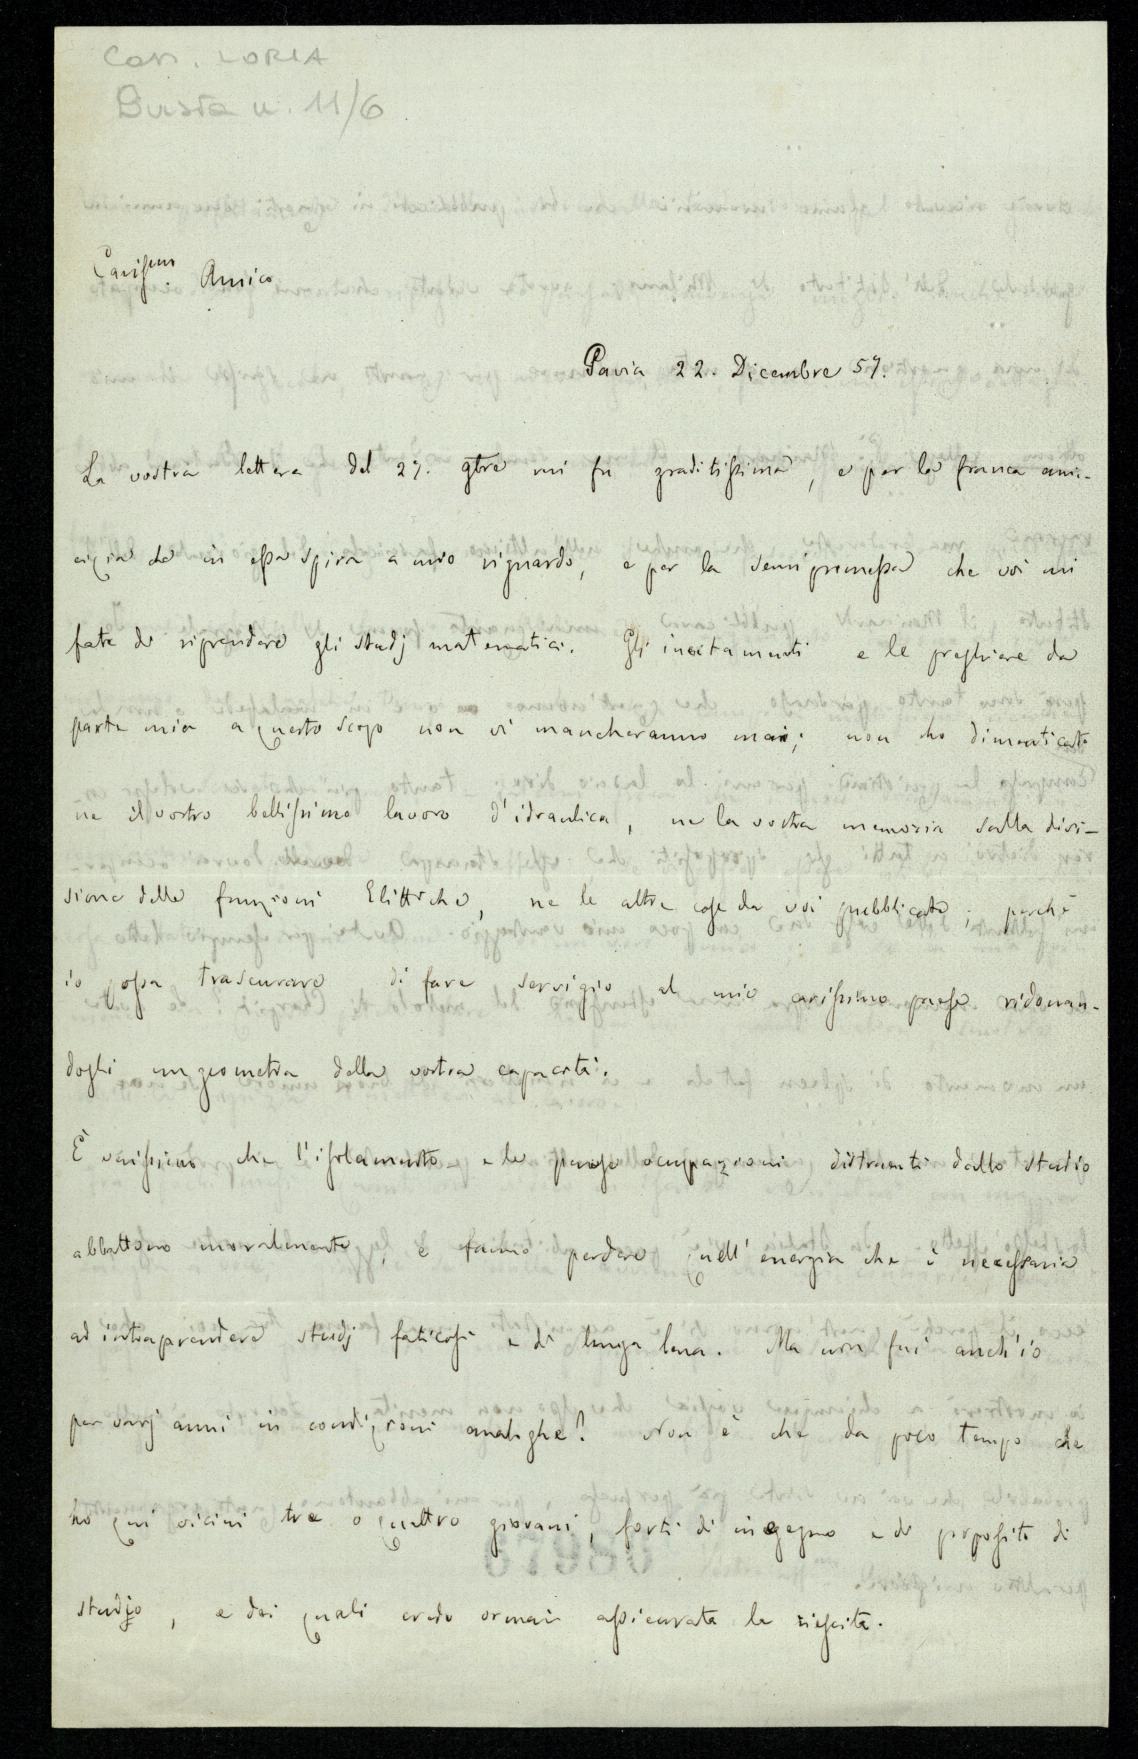 Corr. LORIA
Busta n. 11/6
Cariss.mo Amico
Pavia 22. Dicembre 57.
La vostra lettera del 27. 9bre mi fu graditissima, e per la franca ami-
cizia che in essa spira a mio riguardo, e per la semi promessa che voi mi
fate di riprendere gli studj matematici. Gli incitamenti e le preghiere da
parte mia a questo scopo non vi mancheranno mai; non ho dimenticato
ne il vostro bellissimo lavoro d'idraulica, ne la vostra memoria sulla divi-
sione delle funzioni Elittiche, ne le altre cose da voi pubblicate; perchè
io possa trascurare di fare servigio al mio carissimo paese ridonan-
dogli un geometra della vostra capacità.
È verissimo che l'isolamento e le occupazioni distraenti dallo studio
abbattono moralmente, e fanno perdere quell'energia che è necessaria
ad intraprendere studj faticosi e di lunga lena. Ma non fui anch'io
per varj anni in condizioni analoghe? Non è che da poco tempo che
ho qui vicini tre o quattro giovani, forti di ingegno e di propositi di
studio, e dei quali credo ormai assicurata la riescita.
08979